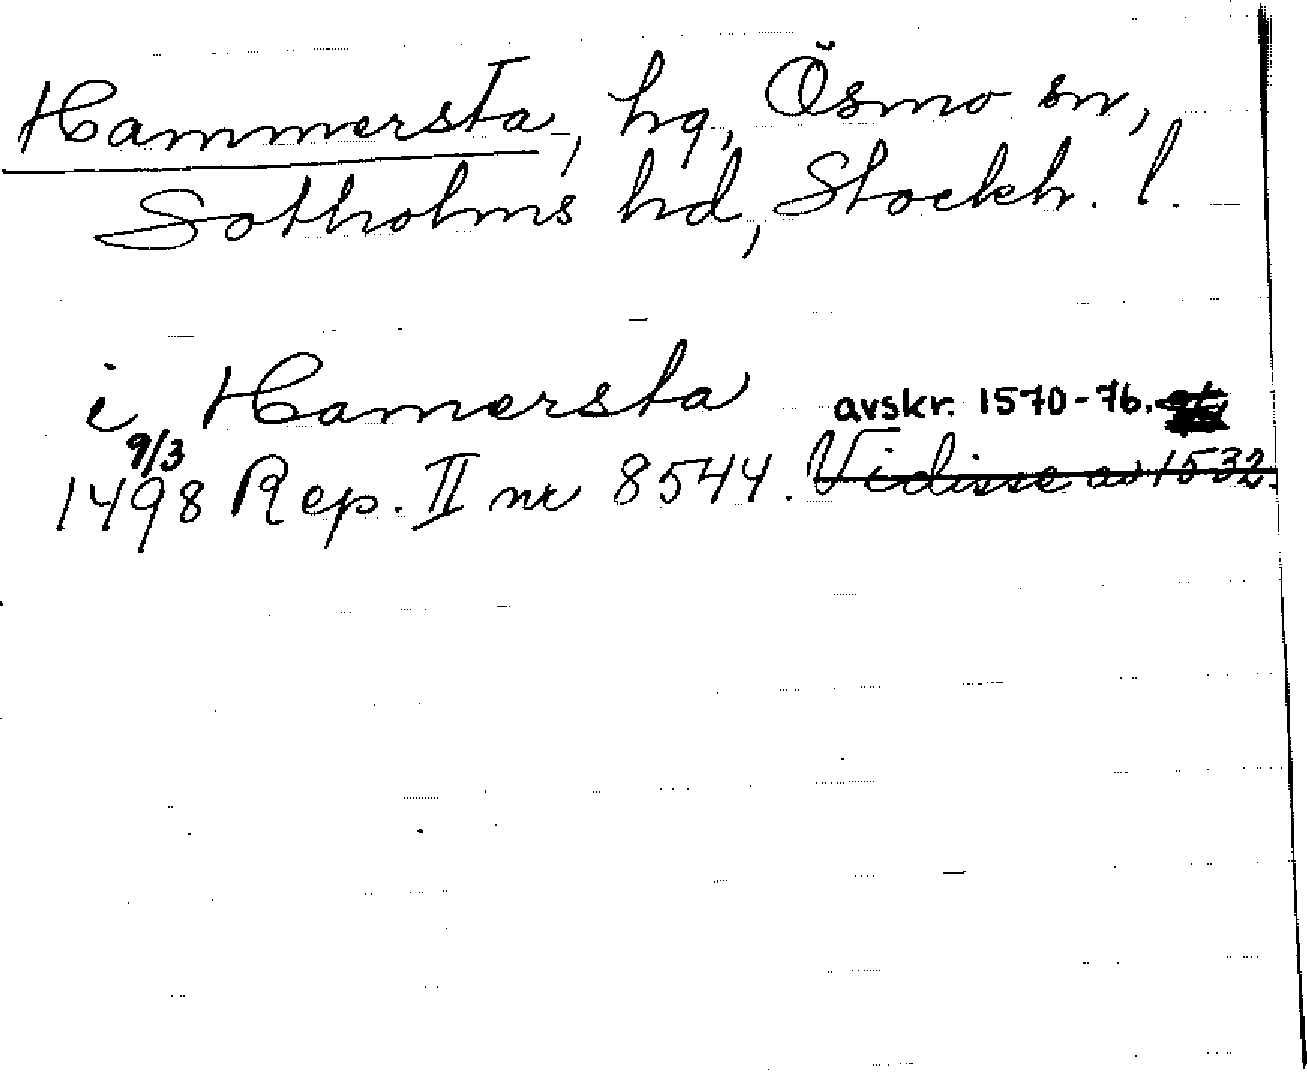 Hammersta, hg, Ösmo sn,
Sotholms hd, Stockh. l.
i Hamersta avskr. 1570-76.
9/3
1498 Rep. II nr 8544. Vidisse av 1532.